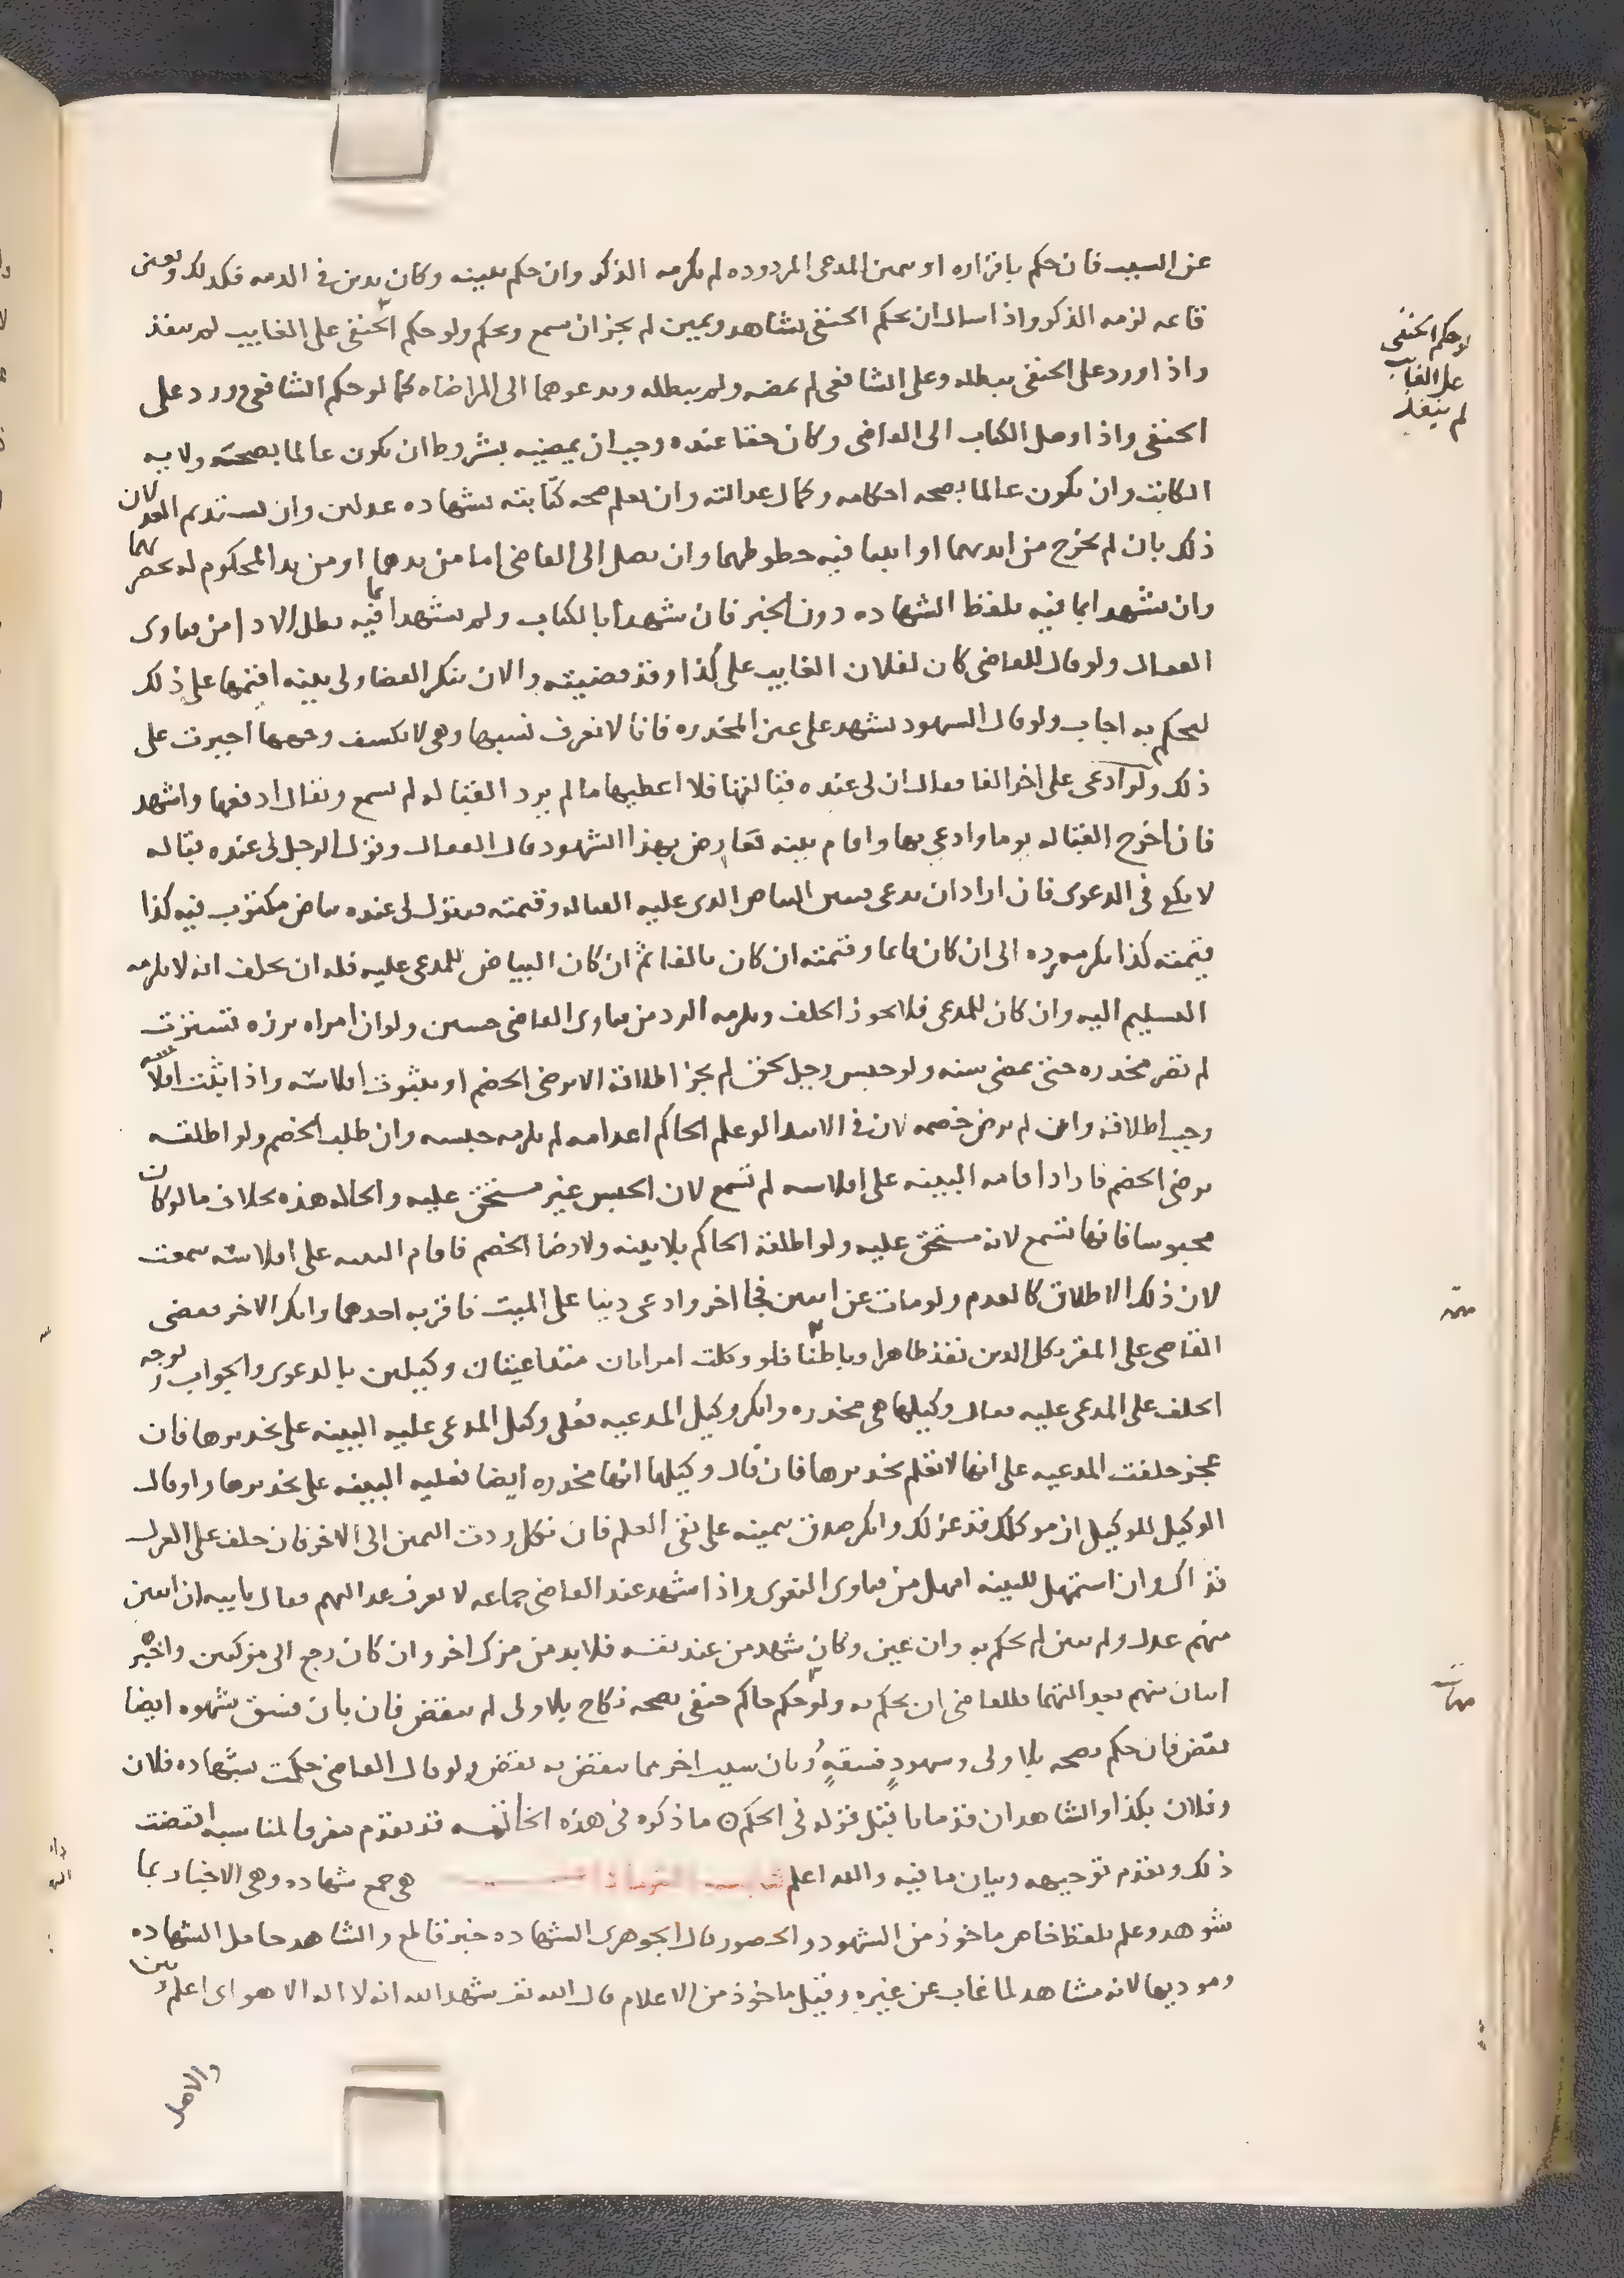 عن السبب فان حكم باقراره او بيمين المدعى المردوده لم يلزمه الذكر وان حكم ببينه وكان بدين في الذمه فكذلك وبعين
قايمه لزمه الذكر واذا سال ان يحكم الحنفي بشاهد ويمين لم يجز ان يسمع ويحكم ولو حكم الحنفي على الغايب لم ينفذ
واذا اورد على الحنفي يبطله وعلى الشافعي لم يمضه ولم يبطله ويدعوهما الى المراضاه كما لو حكم الشافعي وورد على
الحنفي واذا وصل الكتاب الى القاضي وكان حقا عنده وجب ان يمضيه بشروط ان يكون عالما بصحه ولايه
الكاتب وان يكون عالما بصحه احكامه وكمال عدالته وان يعلم صحه كتابته بشهاده عدلين وان يستديم العدلان
ذلك بان لم يخرج من ايديهما او اثبتا فيه خطوطهما وان يصل الى القاضي اما من يدهما او من يد المحكوم له بحضرتهما
وان يشهدا بما فيه بلفظ الشهاده دون الخبر فان شهدا بالكتاب ولم يشهدا بما فيه بطل الادا من فتاوى
القفال ولو قال للقاضي كان لفلان الغايب علي كذا وقد قضيته والان ينكر القضا ولي بينه اقيمها على ذلك
ليحكم به اجاب ولو قال الشهود نشهد على عين المخدره فانا لا نعرف نسبها وهي لا تكشف وجهها اجبرت على
ذلك ولو ادعى على اخر الفا فقال ان لي عنده قباله بها فلا اعطيها ما لم يرد القباله لم يسمع ويقال ادفعها واشهد
فان اخرج القباله يوما وادعى بها واقام بينه تعارض بهذا الشهود قال القفال وقول الرجل لي عنده قباله
لا يكفي في الدعوى فان اراد ان يدعي بعين البياض الذي عليه القباله وقيمته فيقول لي عنده بياض مكتوب فيه كذا
قيمته كذا يلزمه رده الي ان كان قايما وقيمته ان كان تالفا ثم ان كان البياض للمدعى عليه فله ان يحلف انه لا يلزمه
التسليم اليه وان كان للمدعي فلا يجوز الحلف ويلزمه الرد من فتاوى القاضي حسين ولو ان امراه برزه تسترت
لم تصر مخدره حتى يمضى سنه ولو حبس رجل بحق لم يجز اطلاقه الا برضى الخصم او بثبوت افلاسه واذا ثبت افلاسه
وجب اطلاقه وان لم يرض خصمه لان في الابتدا لو علم الحاكم اعدامه لم يلزمه حبسه وان طلب الخصم ولو اطلقه
برضى الخصم فاراد اقامه البينه على افلاسه لم تسمع لان الحبس غير مستحق عليه والحاله هذه بخلاف ما لو كان
محبوسا فانها تسمع لانه مستحق عليه ولو اطلقه الحاكم بلا بينه ولا رضا الخصم فاقام البينه على افلاسه سمعت
لان ذلك الاطلاق كالعدم ولو مات عن ابنين فجا اخر وادعى دينا على الميت فاقر به احدهما وانكر الاخر فقضى
القاضي على المقر بكل الدين نفذ ظاهرا وباطنا فلو وكلت امراتان متداعيتان وكيلين بالدعوى والجواب وتوجه
الحلف على المدعى عليه فقال وكيلها هي مخدره وانكر وكيل المدعيه فعلى وكيل المدعى عليه البينه على تخديرها فان
عجز حلفت المدعيه على انها لا تعلم تخديرها فان قال وكيلها انها مخدره ايضا فعليه البينه على تخديرها ولو قال
الوكيل للوكيل ان موكلك قد عزلك وانكر صدق بيمينه على نفي العلم فان نكل ردت اليمين الى الاخر فان حلف على العزل
فذاك وان استمهل للبينه امهل من فتاوى البغوي واذا شهد عند القاضي جماعه لا يعرف عدالتهم فقال نايبه ان اثنين
منهم عدل ولم يعين لم يحكم به وان عين وكان شهد من عند نفسه فلا بد من مزك اخر وان كان رجع الى مزكيين واخبره
اثنان منهم بعد التهما فللقاضي ان يحكم به ولو حكم حاكم حنفي بصحه نكاح بلا ولى لم ينقض فان بان فسق شهوده ايضا
نقض فان حكم بصحه بلا ولى وشهود فسقه وبان سبب اخر مما ينقض به نقض ولو قال القاضي حكمت بشهاده فلان
وفلان بكذا والشاهدان قد ماتا قبل قوله في الحكم ما ذكره في هذه الخاتمه قد تقدم مفرقا لمناسبه اقتضت
ذلك وتقدم توجيهه وبيان ما فيه والله اعلم هي جمع شهاده وهي الاخبار بما
شوهد وعلم بلفظ خاص ماخوذ من الشهود والحضور قال الجوهرى الشهاده خبر قاطع والشاهد حامل الشهاده
وموديها لانه مشاهد لما غاب عن غيره وقيل ماخوذ من الاعلام قال الله تع شهد الله انه لا اله الا هو اى اعلم وبين
والاصل
لو حكم الحنفي
على الغايب
لم ينفذ